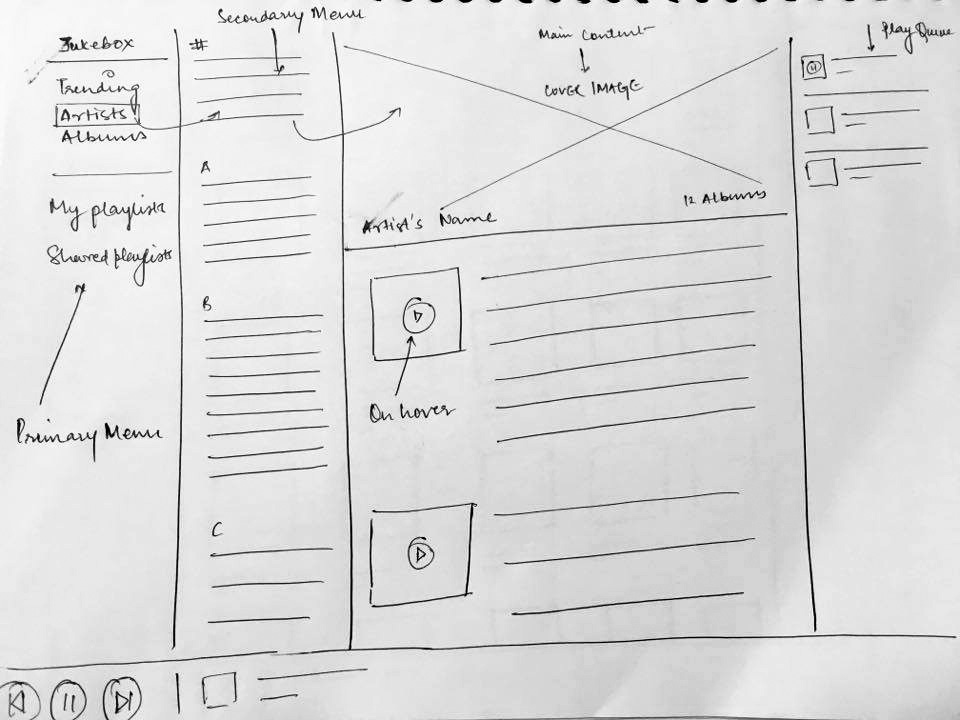 Jukebox
Trending
Artists
Albums
My playlists
Shared playlists
Primary Menu
Secondary Menu
#
A
B
C
Main Content
COVER IMAGE
Artist's Name
12 Albums
On hover
Play Queue